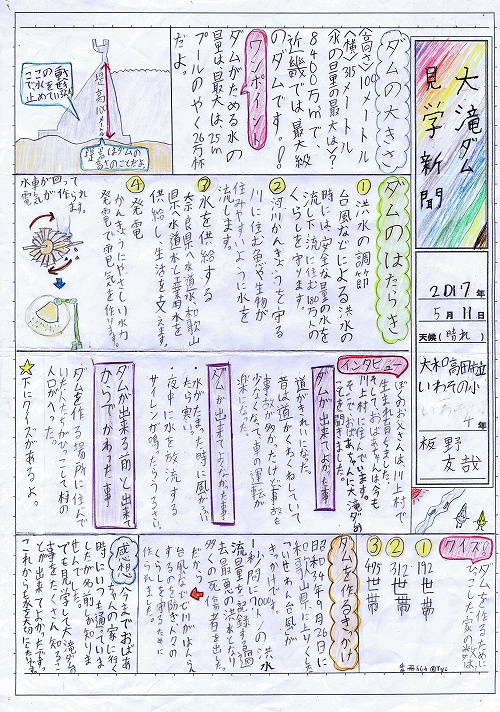 大滝ダム
見学新聞
2017年
5月11日
天候(晴れ)
大和高田市立
いわその小
年
板野
友哉
ダムの大きさ
(高さ)100メートル
(横)315メートル
水の量の最大は?
8400万㎥で、
近畿では最大級
のダムです。
ワンポイント
ダムがためる水の
量は最大は25m
プールのやく26万杯
だよ。
堤高100メートル
ダムのはたらき
①洪水の調節
台風などによる洪水の
時には、安全な量の水を
流し下流に住む180万人の
くらしを守ります。
②河川かんきょうを守る
川に住む魚や生物が
住みやすいように水を
流します。
③水を供給する
奈良県へ水道水、和歌山
県へ水道水と工業用水を
供給し、生活を支えます。
④発電
かんきょうにやさしい水力
発電で電気を作ります。
水車が回って
電気が作られ
ます。
インタビュー
ぼくのお父さんは、川上村で
生まれ育ちました。
そしておばあちゃんは今も
川上村に住んでいます。
そこで、おばあちゃんに大滝ダムの
ことを聞きました。
ダムが出来てよかった事
道がきれいになった。
昔は道がくねくねしていて
事故が多かったけど事故も
少なくなって車の運転が
楽になった。
ダムが出来てよくなかった事
・水がたまった時に風がふい
たら寒い。
・夜中に水を放流する
サイレンが鳴ったらうるさい。
ダムが出来る前と出来て
からでかわった事
ダムを作る場所に住んで
いた人たちがひっこして村の
人口がへった。
☆下にクイズがあるよ。
クイズ
ダムを作るために
ひっこした家の数は?
①192世帯
②312世帯
③495世帯
ダムを作るきっかけ
昭和34年9月26日に
和歌山県に上りくした
「いせわん台風」が
きっかけです。
1秒間に7000トンの洪水
流量を記録する過
去最悪の洪水となり
多くの死傷者を出した。
だから
台風などで川がはんらん
するのを防ぎ人の
くらしを守るために
作られました。
感想
今までおばあ
ちゃんの家に行く
時にいつも通っていま
したがあまり知りま
せんでした。
でも見学して大滝ダムの
事をたくさん知るこ
とが出来てよかったです。
これからも水を大切にしたいです。